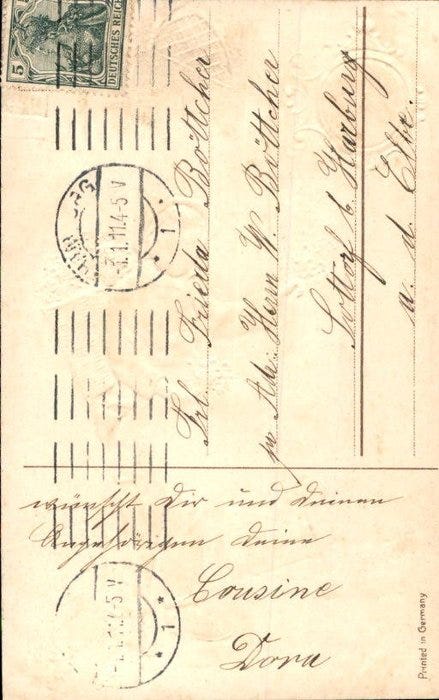 5
DEUTSCHES REICH
1.11.4-5 V
1
Frl. Frieda Böttcher
pr Adr. Herrn W. Böttcher
Lottorf b. Harburg
a. d. Elbe.
wünscht Dir und Deinen
Angehörigen Deine
Cousine
Dora
.11.4-5 V
1
Printed in Germany